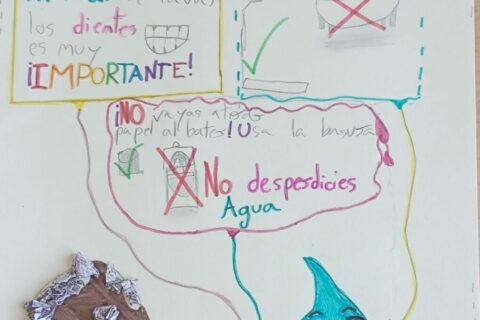 los dientes
es muy
¡IMPORTANTE!
¡NO vayas
papel al bater! Usa la basura
No desperdicies
Agua